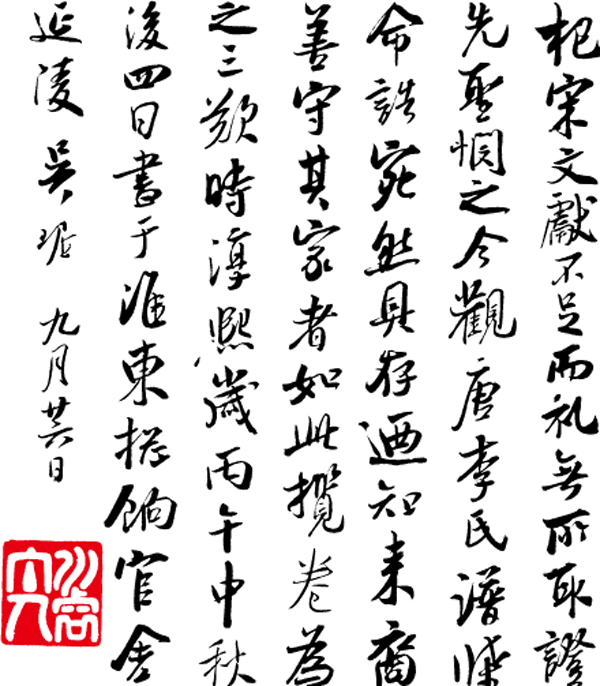 杞宋文獻不足而礼無所取證
先聖憫之今觀唐李氏譜牒
命誥宛然具存迺知来裔
善守其家者如此攬卷為
之三歎時淳熙歲丙午中秋
後四日書于淮東揔餉官舍
延陵吳琚 九月廿六日